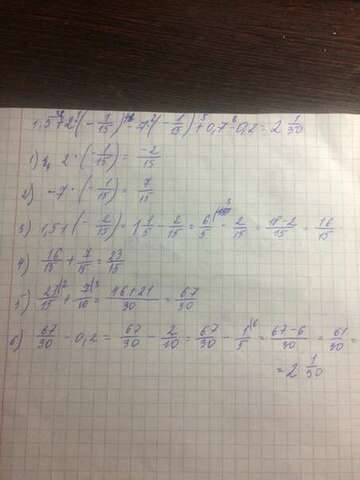 1,5+2·(-1/15)-7·(-1/15)+0,7-0,2=2 1/30
1) 2·(-1/15)=-2/15
2) -7·(-1/15)=7/15
3) 1,5+(-2/15)=1 1/5-2/15=6/5-2/15=18-2/15=16/15
4) 16/15+7/15=23/15
5) 23/15+7/10=46+21/30=67/30
6) 67/30-0,2=67/30-2/10=67/30-1/5=67-6/30=61/30=
=2 1/30